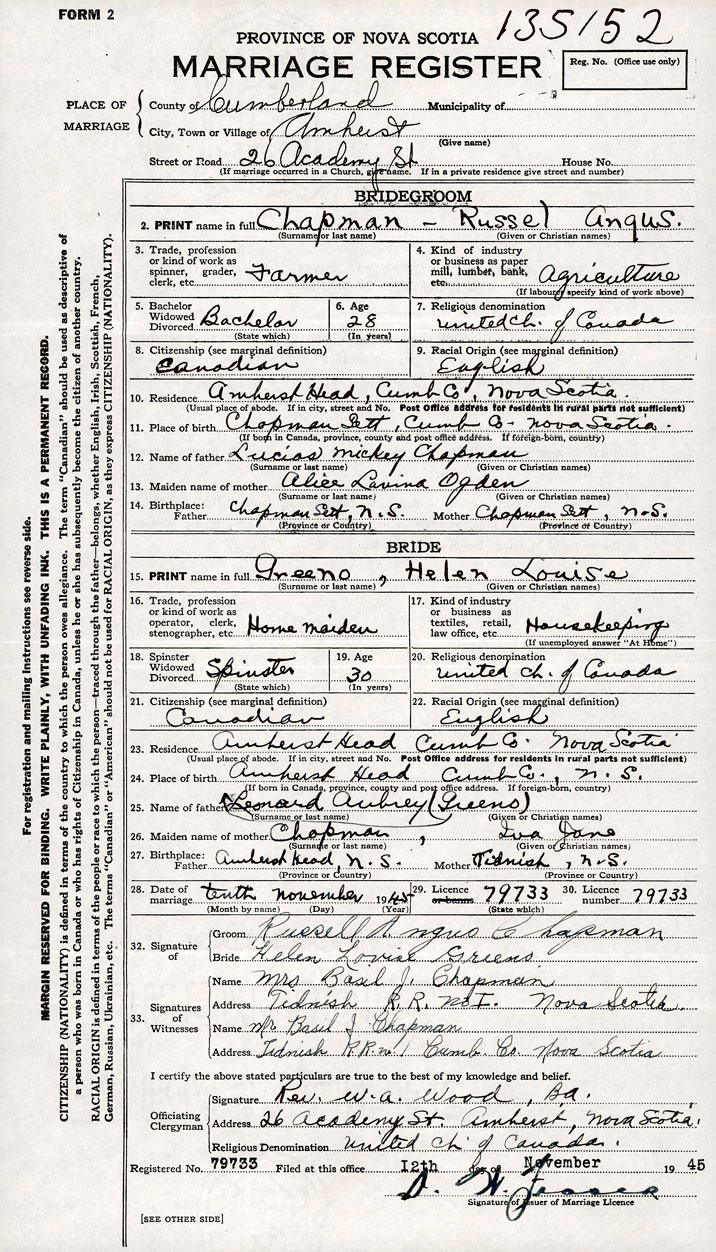 FORM 2
135152
PROVINCE OF NOVA SCOTIA
MARRIAGE REGISTER
Reg. No. (Office use only)
PLACE OF MARRIAGE
County of Cumberland Municipality of
City, Town or Village of Amherst
(Give name)
Street or Road 26 Academy St House No.
(If marriage occurred in a Church, give name. If in a private residence give street and number)
BRIDEGROOM
2. PRINT name in full Chapman - Russel Angus.
(Surname or last name) (Given or Christian names)
3. Trade, profession or kind of work as spinner, grader, clerk, etc. Farmer
4. Kind of industry or business as paper mill, lumber, bank, etc. Agriculture
(If labourer specify kind of work above)
5. Bachelor Widowed Divorced Bachelor
(State which)
6. Age 28
(In years)
7. Religious denomination united ch. of Canada
8. Citizenship (see marginal definition) Canadian
9. Racial Origin (see marginal definition) English
10. Residence Amherst Head, Cumb Co, Nova Scotia.
(Usual place of abode. If in city, street and No. Post Office address for residents in rural parts not sufficient)
11. Place of birth Chapman Sett, Cumb Co - Nova Scotia.
(If born in Canada, province, county and post office address. If foreign-born, country)
12. Name of father Lucias Mickey Chapman
(Surname or last name) (Given or Christian names)
13. Maiden name of mother Alice Lavina Ogden
(Surname or last name) (Given or Christian names)
14. Birthplace: Father Chapman Sett, N.S. Mother Chapman Sett, N.S.
(Province or Country) (Province or Country)
BRIDE
15. PRINT name in full Greeno, Helen Louise
(Surname or last name) (Given or Christian names)
16. Trade, profession or kind of work as operator, clerk, stenographer, etc. Home maiden
17. Kind of industry or business as textiles, retail, law office, etc. Housekeeping
(If unemployed answer "At Home")
18. Spinster Widowed Divorced Spinster
(State which)
19. Age 30
(In years)
20. Religious denomination united ch. of Canada
21. Citizenship (see marginal definition) Canadian
22. Racial Origin (see marginal definition) English
23. Residence Amherst Head Cumb Co. Nova Scotia
(Usual place of abode. If in city, street and No. Post Office address for residents in rural parts not sufficient)
24. Place of birth Amherst Head Cumb Co., N.S.
(If born in Canada, province, county and post office address. If foreign-born, country)
25. Name of father Leonard Aubrey (Greeno)
(Surname or last name) (Given or Christian names)
26. Maiden name of mother Chapman, Iva Jane
(Surname or last name) (Given or Christian names)
27. Birthplace: Father Amherst Head, N.S. Mother Tidnish, N.S.
(Province or Country) (Province or Country)
28. Date of marriage tenth november 1945
(Month by name) (Day) (Year)
29. Licence or banns 79733
(State which)
30. Licence number 79733
32. Signature of
Groom Russell Angus Chapman
Bride Helen Louise Greeno
33. Signatures of Witnesses
Name Mrs Basil J. Chapman
Address Tidnish R.R. No 1. Nova Scotia
Name Mr. Basil J. Chapman
Address Tidnish R.R. no 1 Cumb. Co. Nova Scotia
I certify the above stated particulars are true to the best of my knowledge and belief.
Officiating Clergyman
Signature Rev. W. A. Wood, Ba.
Address 26 Academy St. Amherst, Nova Scotia.
Religious Denomination united ch. of Canada.
Registered No. 79733 Filed at this office 12th day of November 1945
Signature of Issuer of Marriage Licence
[SEE OTHER SIDE]
For registration and mailing instructions see reverse side.
MARGIN RESERVED FOR BINDING. WRITE PLAINLY, WITH UNFADING INK. THIS IS A PERMANENT RECORD.
CITIZENSHIP (NATIONALITY) is defined in terms of the country to which the person owes allegiance. The term "Canadian" should be used as descriptive of
a person who was born in Canada or who has rights of Citizenship in Canada, unless he or she has subsequently become the citizen of another country.
RACIAL ORIGIN is defined in terms of the people or race to which the person—traced through the father—belongs, whether English, Irish, Scottish, French,
German, Russian, Ukrainian, etc. The terms "Canadian" or "American" should not be used for RACIAL ORIGIN, as they express CITIZENSHIP (NATIONALITY).